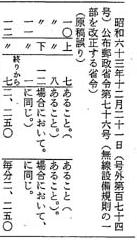 昭和六十三年十二月二十一日（号外第百七十四
号）公布郵政省令第七十六号（無線設備規則の一
部を改正する省令）
（原稿誤り）
一〇 上 七 あること。 あること。
〃 〃 八 あること。）。 あること）。
〃 下 二 場合において、 場合において、
〃 〃 一 に同じ。 に同じ。
〃 〃 終りから七 二、二五〇 毎分二、二五〇